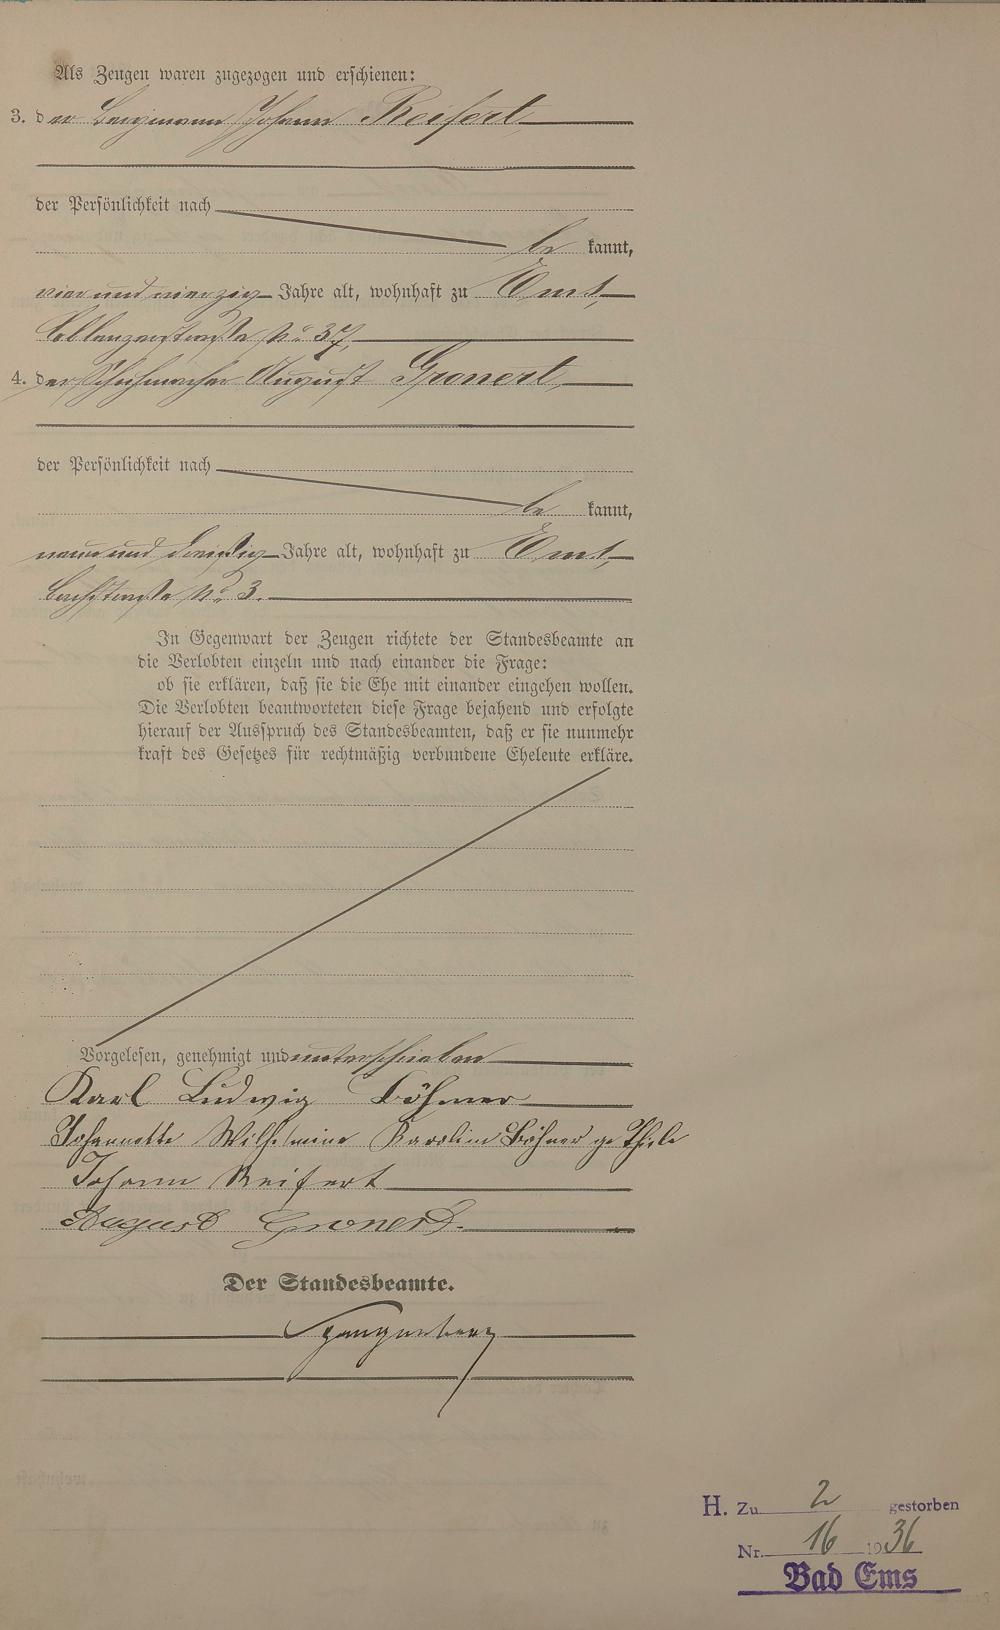 Als Zeugen waren zugezogen und erschienen:
3. der Bergmann Johann Reifert
der Persönlichkeit nach
be kannt,
vier und vierzig Jahre alt, wohnhaft zu Ems,
Coblenzerstraße No 37,
4. der Schuhmacher August Gronert,
der Persönlichkeit nach
be kannt,
neun und dreißig Jahre alt, wohnhaft zu Ems,
Bachstraße No 3.
In Gegenwart der Zeugen richtete der Standesbeamte an
die Verlobten einzeln und nach einander die Frage:
ob sie erklären, daß sie die Ehe mit einander eingehen wollen.
Die Verlobten beantworteten diese Frage bejahend und erfolgte
hierauf der Ausspruch des Standesbeamten, daß er sie nunmehr
kraft des Gesetzes für rechtmäßig verbundene Eheleute erkläre.
Vorgelesen, genehmigt und unterschrieben
Karl Ludwig Böhmer
Johannette Wilhelmine Karolin Böhmer ge Thiele
Johann Reifert
August Gronert.
Der Standesbeamte.
Spangenberg
H. Zu 2 gestorben
Nr. 16 1936
Bad Ems